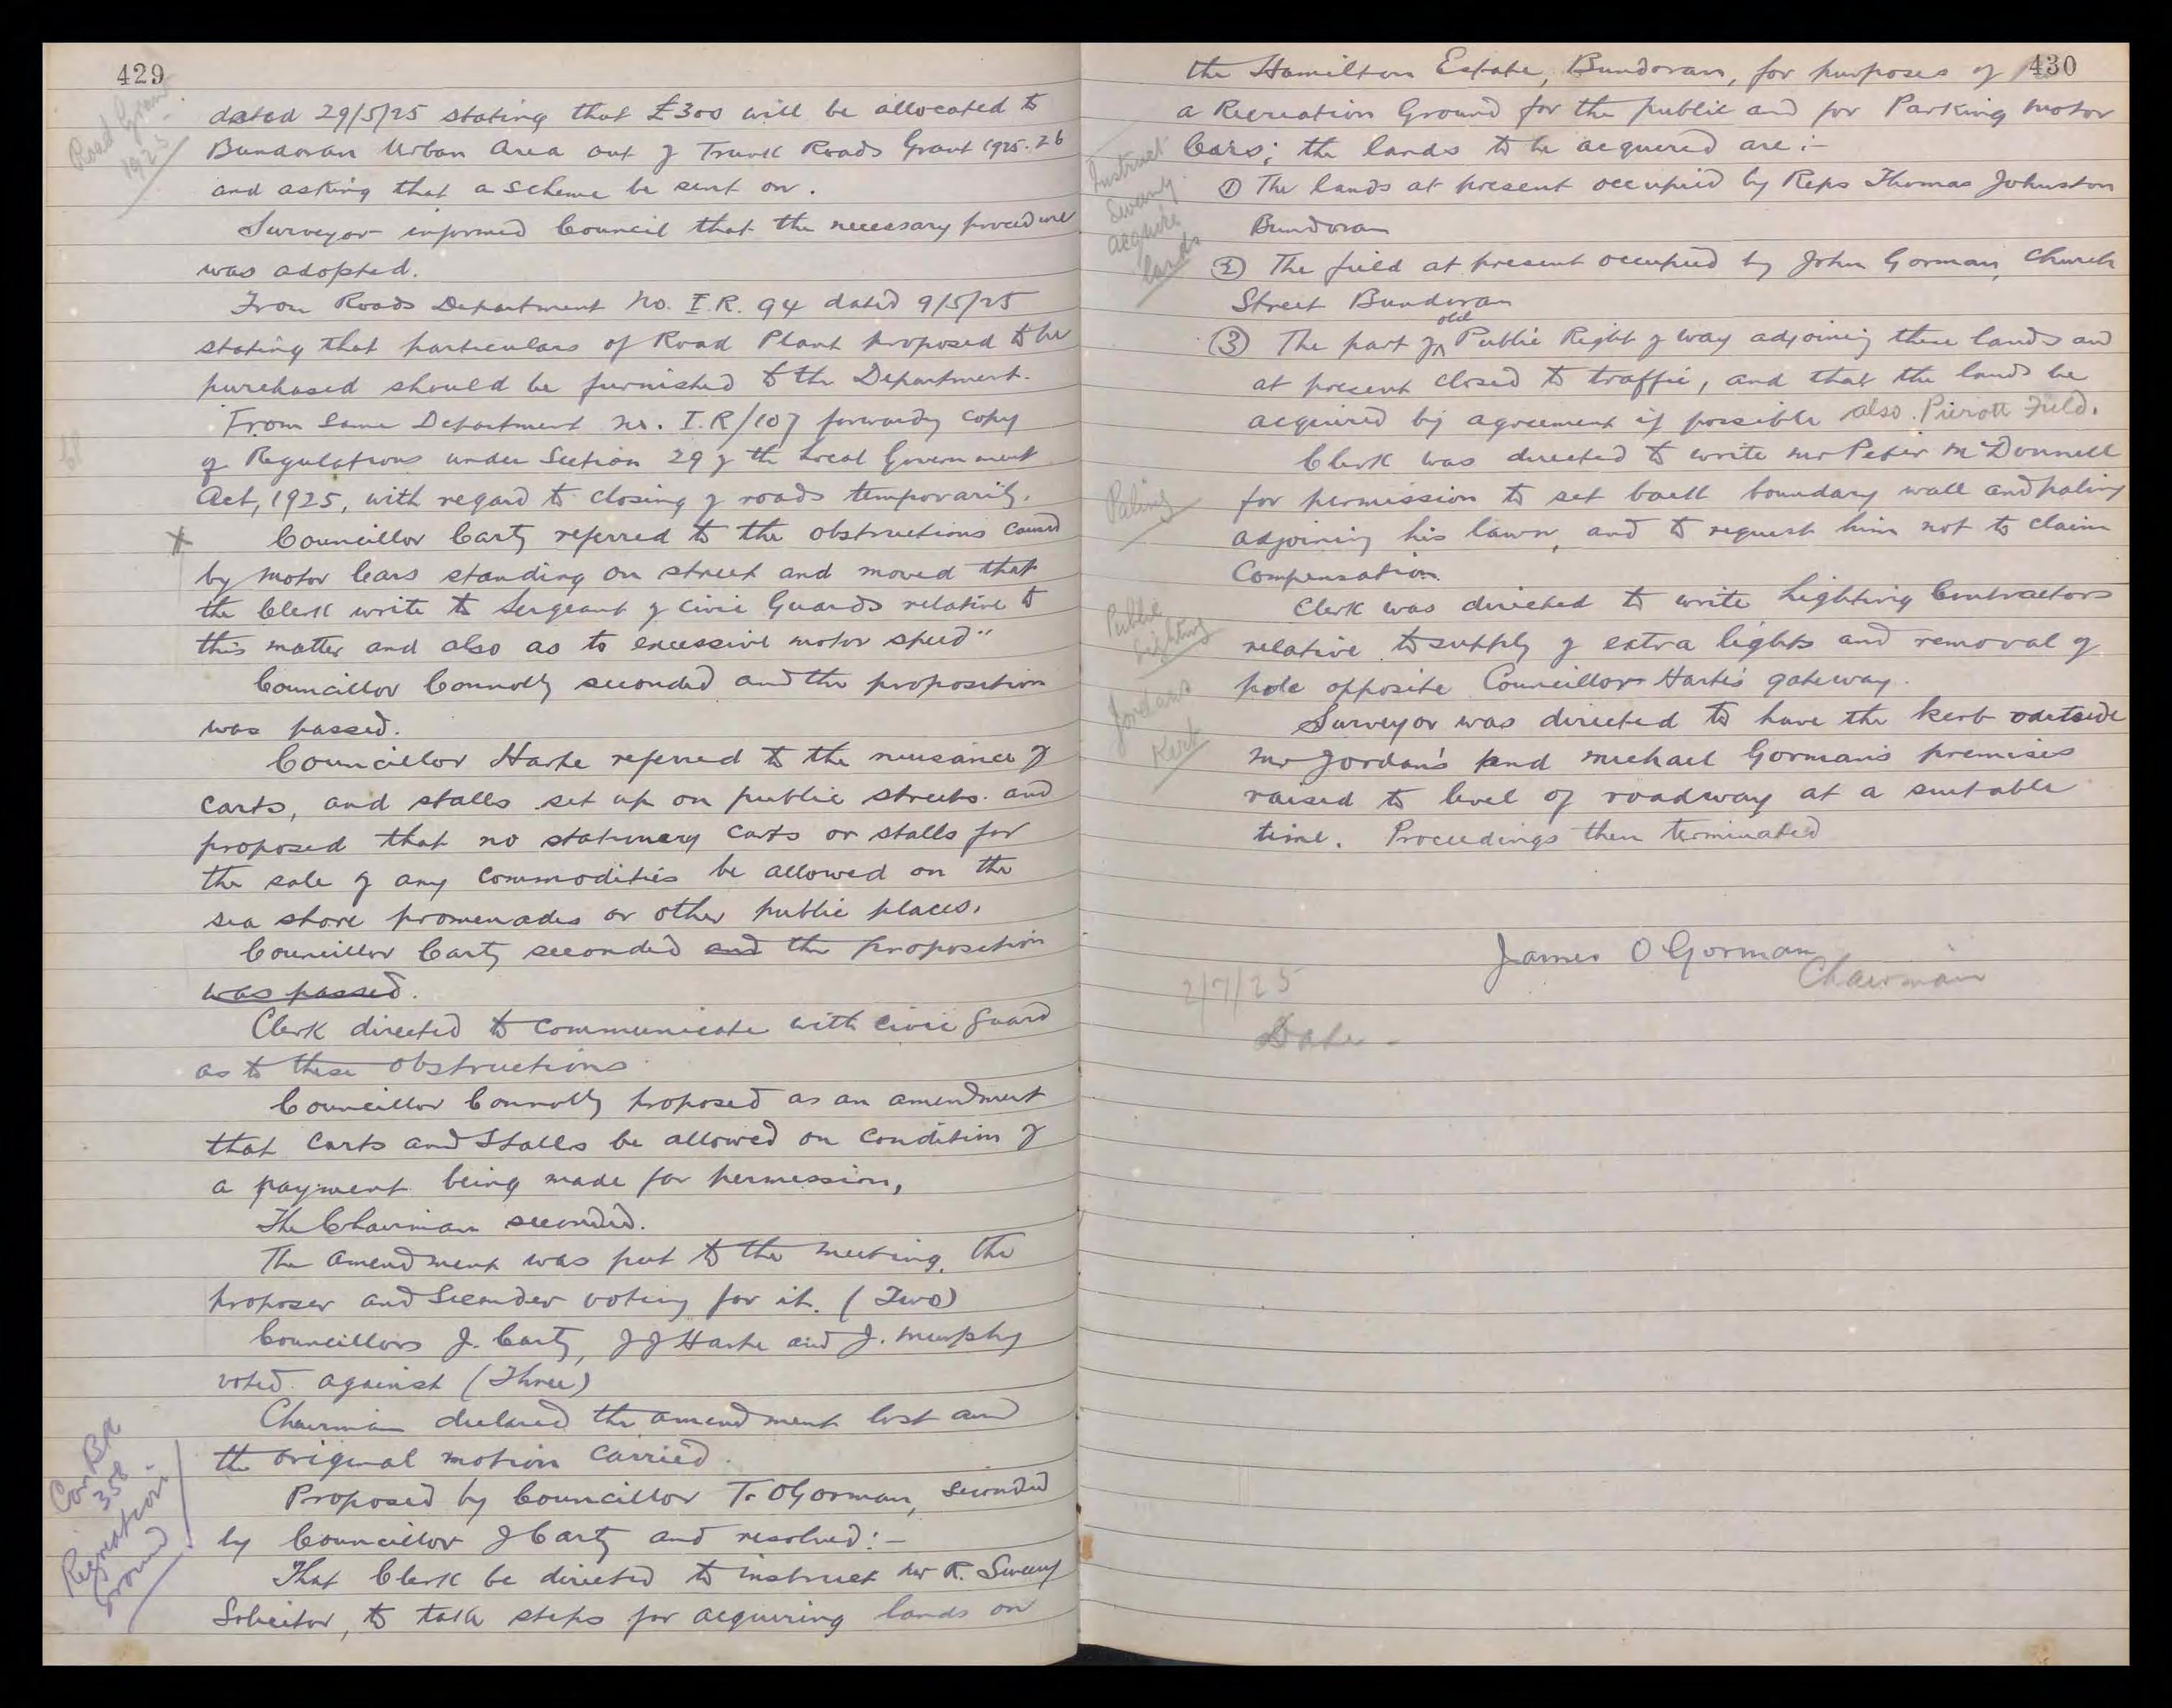 429
Road Grant
1925
dated 29/5/25 stating that £300 will be allocated to
Bundoran Urban Area out of Trunk Roads Grant 1925.26
and asking that a scheme be sent on.
Surveyor informed Council that the necessary procedure
was adopted.
From Roads Department No. I.R. 94 dated 9/5/25
stating that particulars of Road Plant proposed to be
purchased should be furnished to the Department.
From same Department No. I.R/107 forwarding copy
of Regulations under Section 29 of the Local Government
Act, 1925, with regard to closing of roads temporarily.
Councillor Carty referred to the obstructions caused
by Motor Cars standing on street and moved that
the Clerk write to Sergeant of Civic Guards relative to
this matter and also as to excessive motor speed"
Councillor Connolly seconded and the proposition
was passed.
Councillor Harte referred to the nuisance of
carts, and stalls set up on public streets and
proposed that no stationery carts or stalls for
the sale of any commodities be allowed on the
sea shore promenades or other public places.
Councillor Carty seconded and the proposition
was passed.
Clerk directed to communicate with Civic Guard
as to these obstructions
Councillor Connolly proposed as an amendment
that Carts and Stalls be allowed on condition of
a payment being made for permission,
The Chairman seconded.
The amendment was put to the meeting, the
proposer and Seconder voting for it. (Two)
Councillors J. Carty, J J Harte and J. Murphy
voted against (Three)
Chairman declared the amendment lost and
the original motion carried.
Con Bk
358
Recreation
Ground
Proposed by Councillor T. OGorman, seconded
by Councillor J Carty and resolved:-
That Clerk be directed to instruct Mr R. Sweeny
Solicitor, to take steps for acquiring lands on
430
the Hamilton Estate, Bundoran, for purposes of
a Recreation Ground for the public and for Parking Motor
Cars; the lands to be acquired are:-
Instruct
Sweeny
acquire
lands
① The lands at present occupied by Reps Thomas Johnston
Bundoran
② The field at present occupied by John Gorman, Church
Street Bundoran
③ The part of old Public Right of way adjoining these lands and
at present closed to traffic, and that the lands be
acquired by agreement if possible also Pierott Field.
Clerk was directed to write Mr Peter McDonnell
Paling
for permission to set back boundary wall and paling
adjoining his lawn, and to request him not to claim
Compensation.
Public
Lighting
Clerk was directed to write Lighting Contractors
relative to supply of extra lights and removal of
pole opposite Councillor Harte's gateway.
Jordans
Kerb
Surveyor was directed to have the kerb outside
Mr Jordan's and Michael Gorman's premises
raised to level of roadway at a suitable
time. Proceedings then terminated
James O Gorman
Chairman
2/7/25
Date -